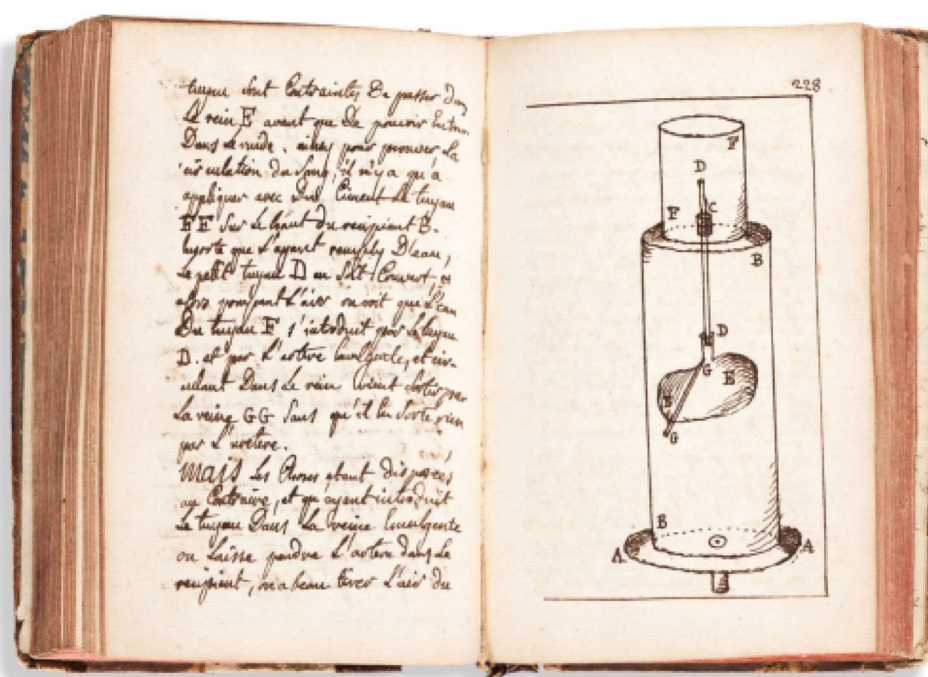 tuyau sont Contraintes De passer dans
Le rein E avant que De pouvoir Entrer
Dans Le vuide. ainsy pour prouver La
circulation du Sang, il n'y a qu'a
appliquer avec Du Ciment Le tuyau
FF Sur Le haut du recipient B.
Ensorte que L'ayant remply D'eau,
Le petit tuyau D en soit Couvert, et
alors pompant L'air on voit que L'eau
Du tuyau F s'introduit par Le tuyau
D. et par L'artere Emulgente, et cir-
culant Dans Le rein vient sortir par
La veine GG Sans qu'il En Sorte rien
par L'uretere.
Mais Les Choses etant disposees
au Contraire, et qu'ayant introduit
Le tuyau Dans La veine Emulgente
on Laisse pendre L'artere dans Le
recipient, on a beau tirer L'air du
228
F
D
C
F
B
D
G
E
E
G
B
A
A